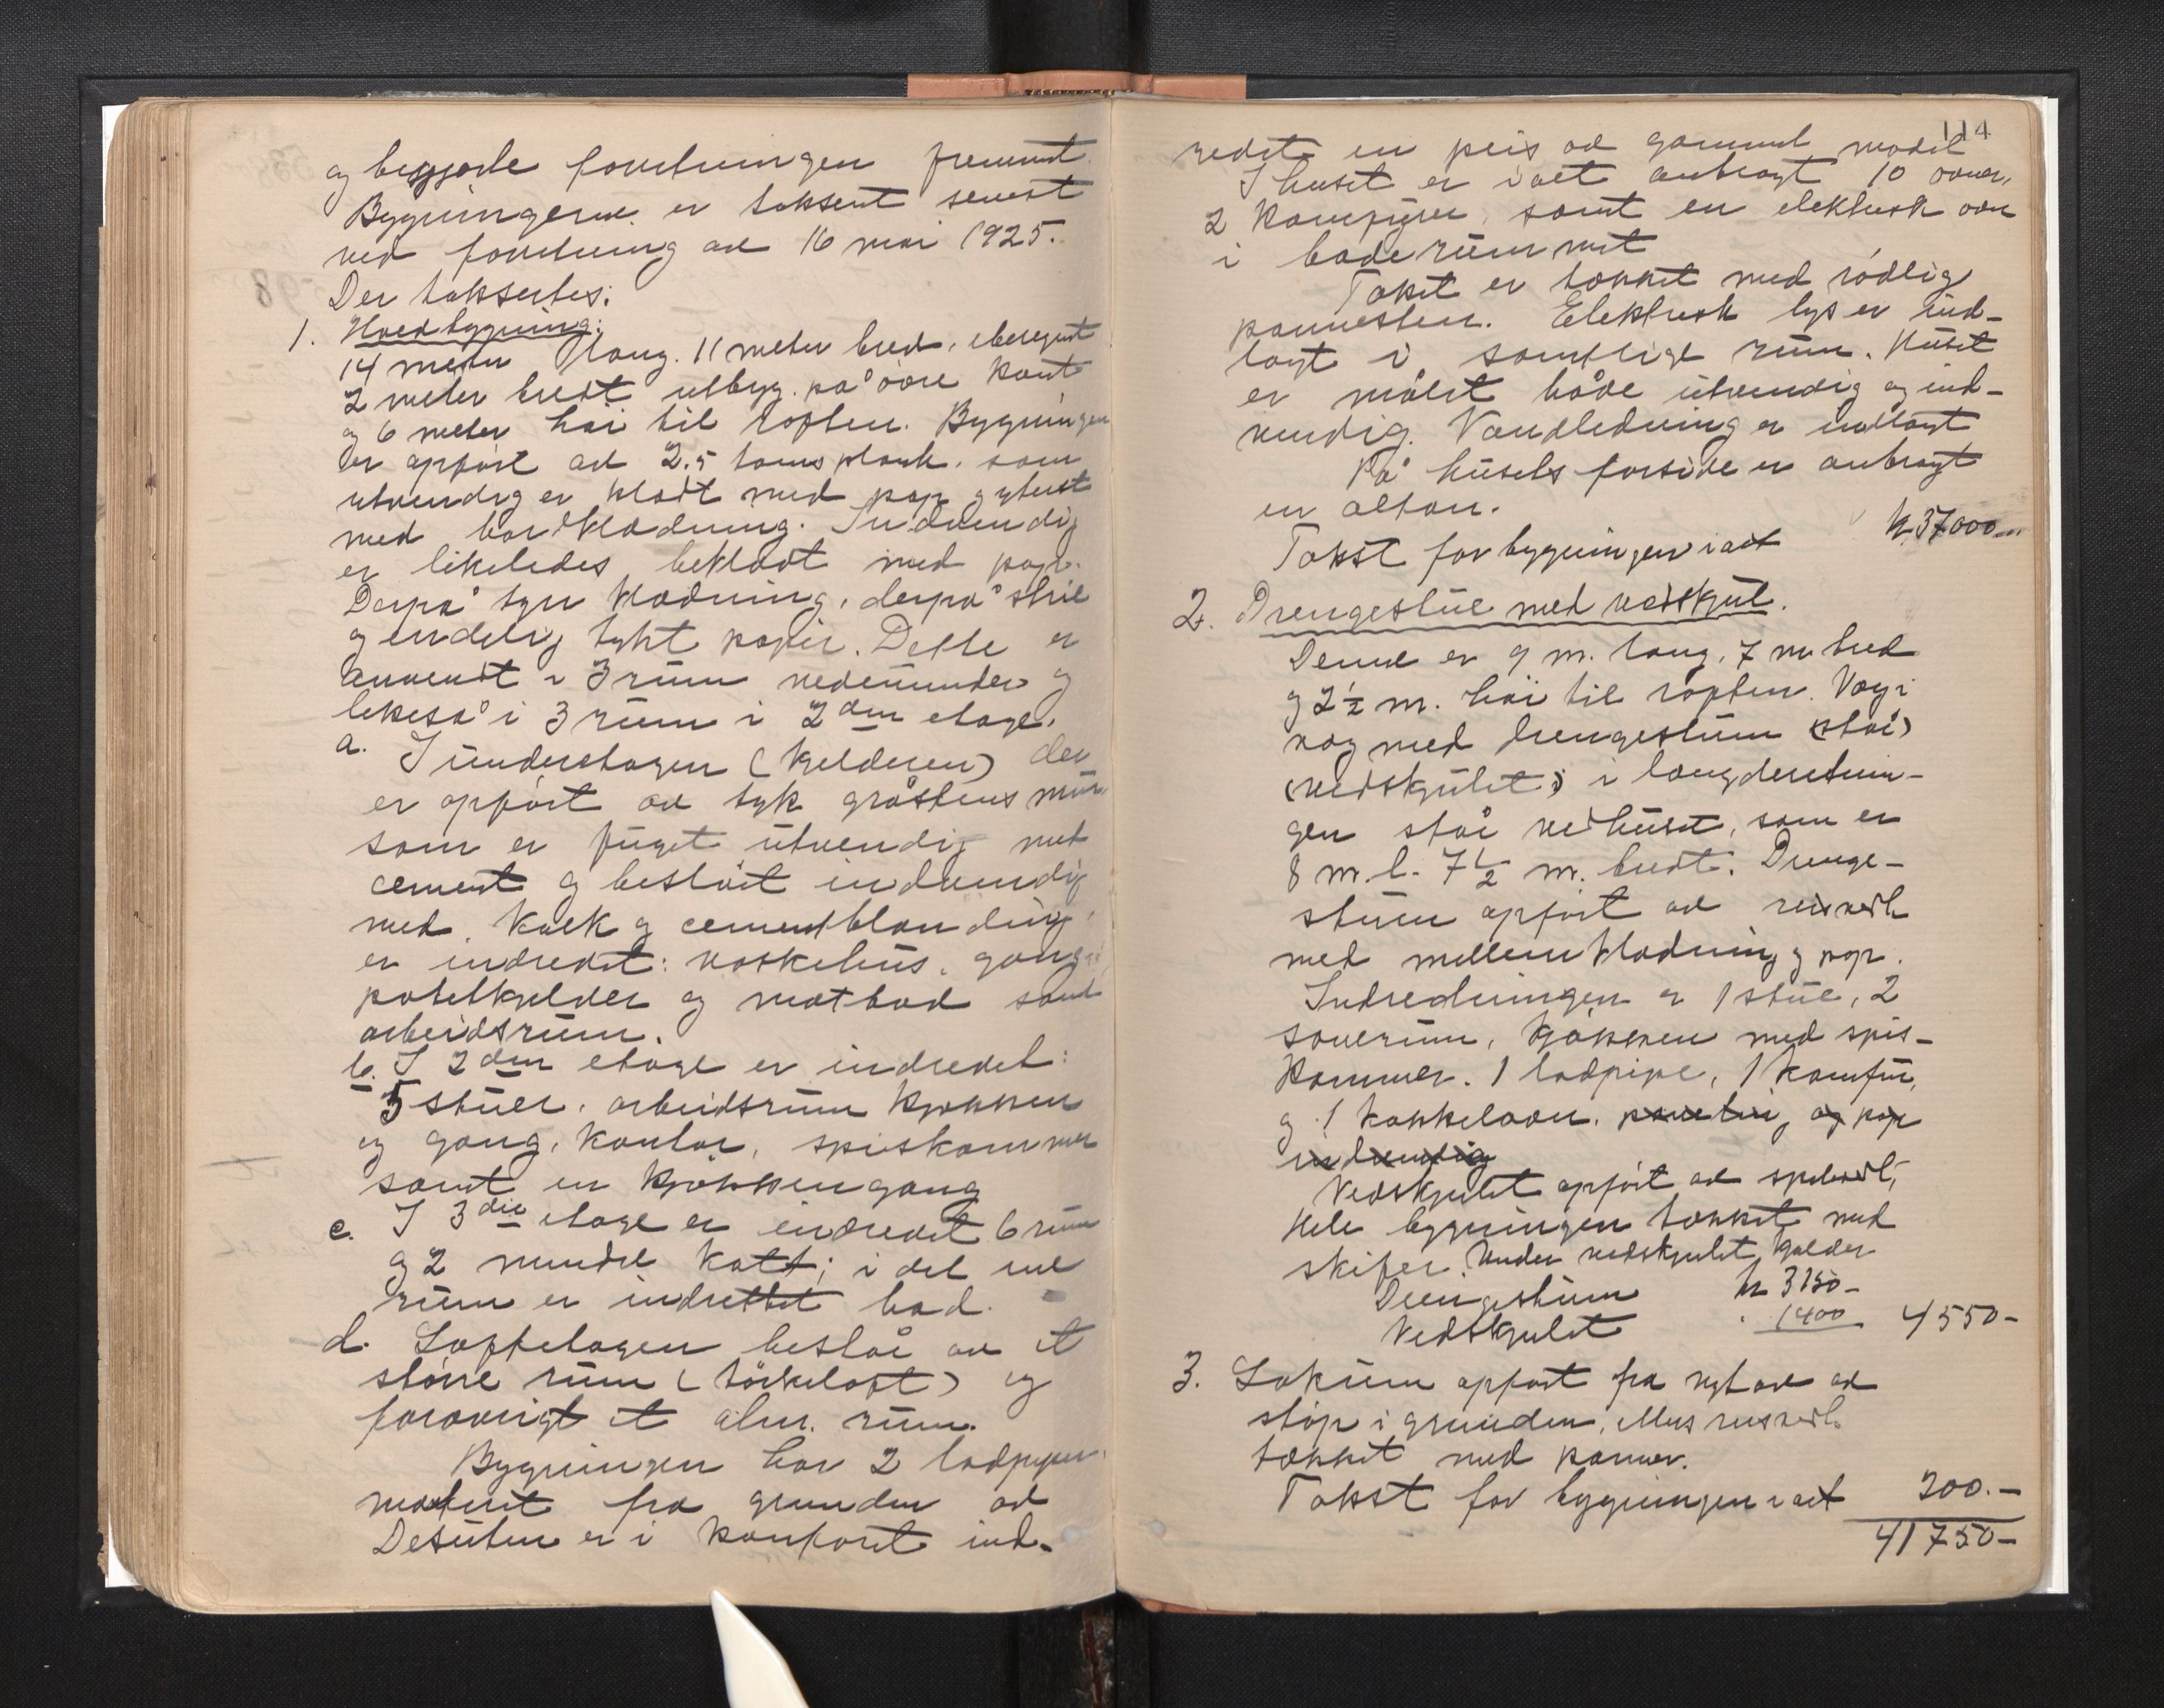 og begjærte forretningen fremmet.
Bygningerne er taksert senest
ved forretning av 16 mai 1925.
Der taksertes:
1. Hovedbygning:
14 meter lang. 11 meter bred, iberegnet
2 meter bredt utbyg. på övre kant
og 6 meter høi til röften. Bygningen
er opfört av 2.5 toms plank, som
utvendig er klædt med pap og yterst
med bordklædning. Indvendig
er likeledes beklædt med pap.
Derpå tyn klædning, derpå strie
og endelig tykt papir. Dette er
anvendt i 3 rum nedenunder og
likeså i 3 rum i 2den etage.
a. I underetagen (kjelderen) der
er opfört av tyk gråstens mur
som er fuget utvendig met
cement og bestöit indvendig
med kalk og cementblanding,
er indredet: vaskehus, gang
potetkjelder og matbod samt
arbeidsrum.
b. I 2den etage er indredet:
5 stuer, arbeidsrum kjökken
og gang, kontor, spiskammer
samt en kjökkengang
c. I 3die etage er indredet 6 rum
og 2 mindre kott; i det ene
rum er indrettet bad.
d. Loftetagen består av et
större rum (törkeloft) og
forøvrigt et alm. rum.
Bygningen har 2 ladpiper
fra grunden av
Desuten er i ind-
114
redet en peis av gammel model
I huset er ialt anbragt 10 ovner,
2 komfyrer, samt en elektrisk ovn
i baderummet
Taket er tækket med rödlig
pannesten. Elektrisk lys er ind-
lagt i samtlige rum. Huset
er målet både utvendig og ind-
vendig. Vandledning er indlagt
På husets forside er anbragt
en altan.
Takst for bygningen i alt kr 37000.-
2. Drengestue med vedskjul.
Denne er 9 m. lang, 7 m bred
og 2½ m. høi til röften. Væg i
væg med drengestuen (står)
(vedskjulet) i længderetnin-
gen står vedhuset, som er
8 m l. 7½ m. bredt. Drenge-
stuen opfört av reisverk
med mellemklædning og pap.
Indredningen er 1 stue, 2
soverum, kjökken med spis-
kammer. 1 ladpipe, 1 komfür,
og 1 kakkelovn, og pap
indvendig
Vedskjulet opfört av
Hele bygningen tækket med
skifer. Under vedskjulet kjelder
Drengestuen kr 3150-
Vedskjulet 1400 4550-
3. Lokum opfört fra nyt av av
støp i grunden, ellers reisverk.
tækket med panner.
Takst for bygningen i alt 200.-
41750-